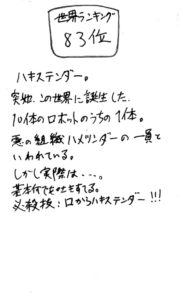 世界ランキング
83位
ハキステンダー。
突如、この世界に誕生した
10体のロボットのうちの1体。
悪の組織ハメツンダーの一員と
いわれている。
しかし実際は・・・。
基本何でも吐きすてる。
必殺技：口からハキステンダー!!!